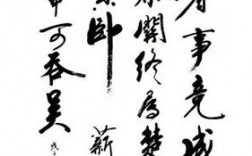 者事竟成
秦關終屬楚
卧薪
甲可吞吴